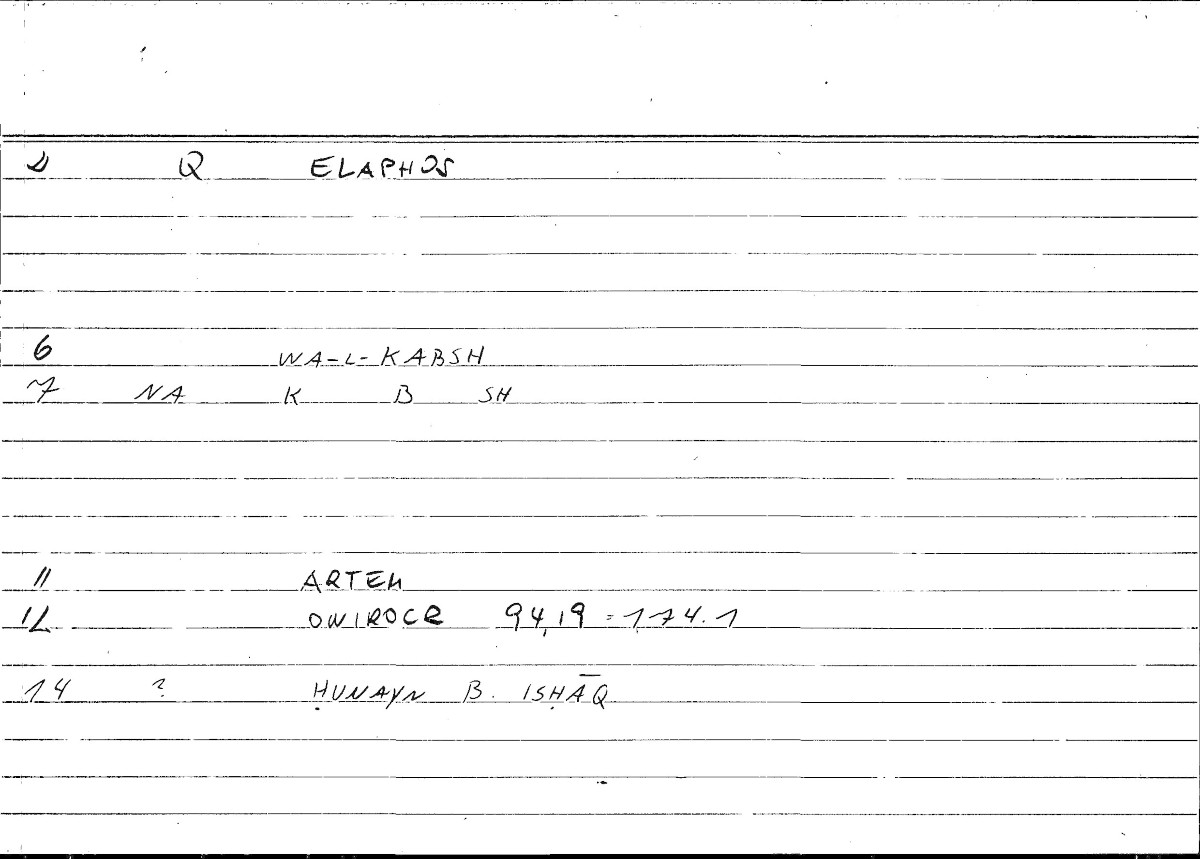 2 Q ELAPHOS
6 WA-L-KABSH
7 NA K B SH
11 ARTEM
12 ONIROCR 94,19 = 174.1
14 ? ḤUNAYN B. ISḤĀQ